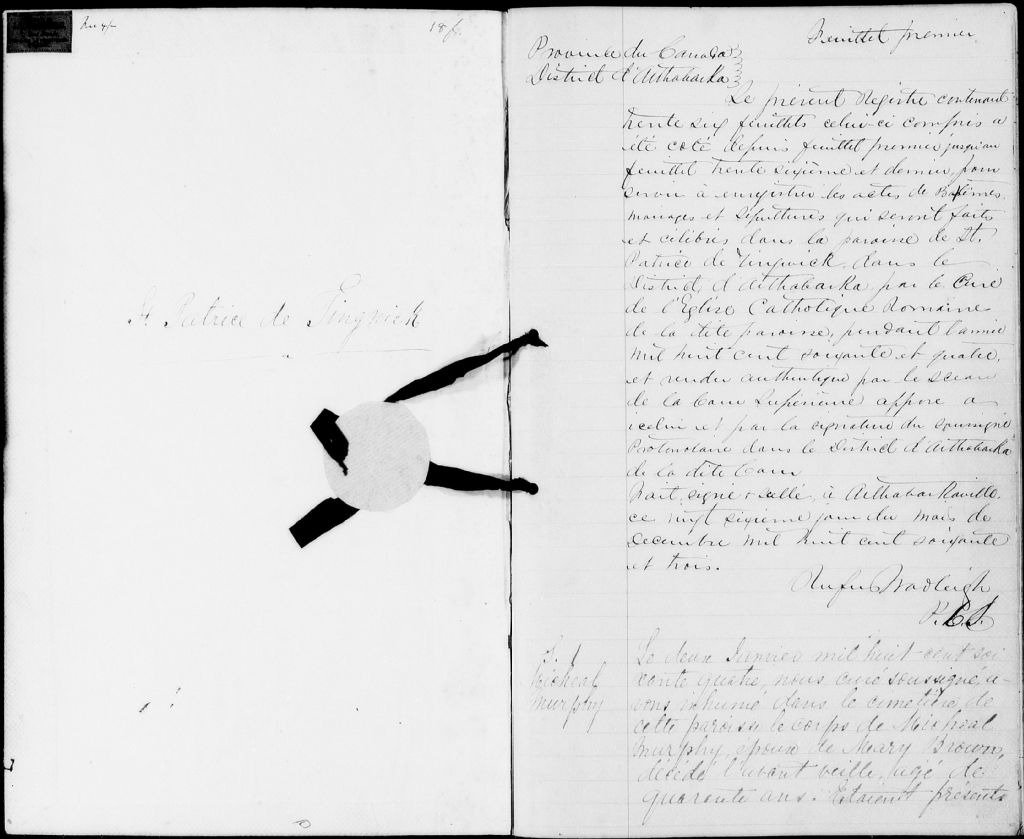 St Patrice de Tingwick
Feuillet premier
Province du Canada
District d'Arthabaska
Le présent Régistre contenant
trente six feuillets celui-ci compris a
été coté depuis feuillet premier jusqu'au
feuillet trente sixième et dernier, pour
servir à enregistrer les actes de Batêmes
mariages et sépultures qui seront faits
et célébrés dans la paroisse de St.
Patrice de Tingwick, dans le
District d'Arthabaska par le Curé
de l'Eglise Catholique Romaine
de la dite paroisse, pendant l'année
mil huit cent soixante et quatre,
et rendu authentique par le Sceau
de la Cour Supérieure apposé a
icelui et par la signature du soussigné
Protonotaire dans le District d'Arthabaska
de la dite Cour
Fait, signé & scellé, à Arthabaskaville,
ce vingt sixième jour du mois de
Decembre mil huit cent soixante
et trois.
Rufus Wadleigh
P.C.S.
S. 1
Micheal
Murphy
Le deux Janvier mil huit cent soi
xante quatre, nous curé soussigné, a-
vons inhumé dans le cimetière de
cette paroisse le corps de Micheal
Murphy, époux de Meary Brown,
décédé l'avant veille, agé de
quarante ans. Etaient présents